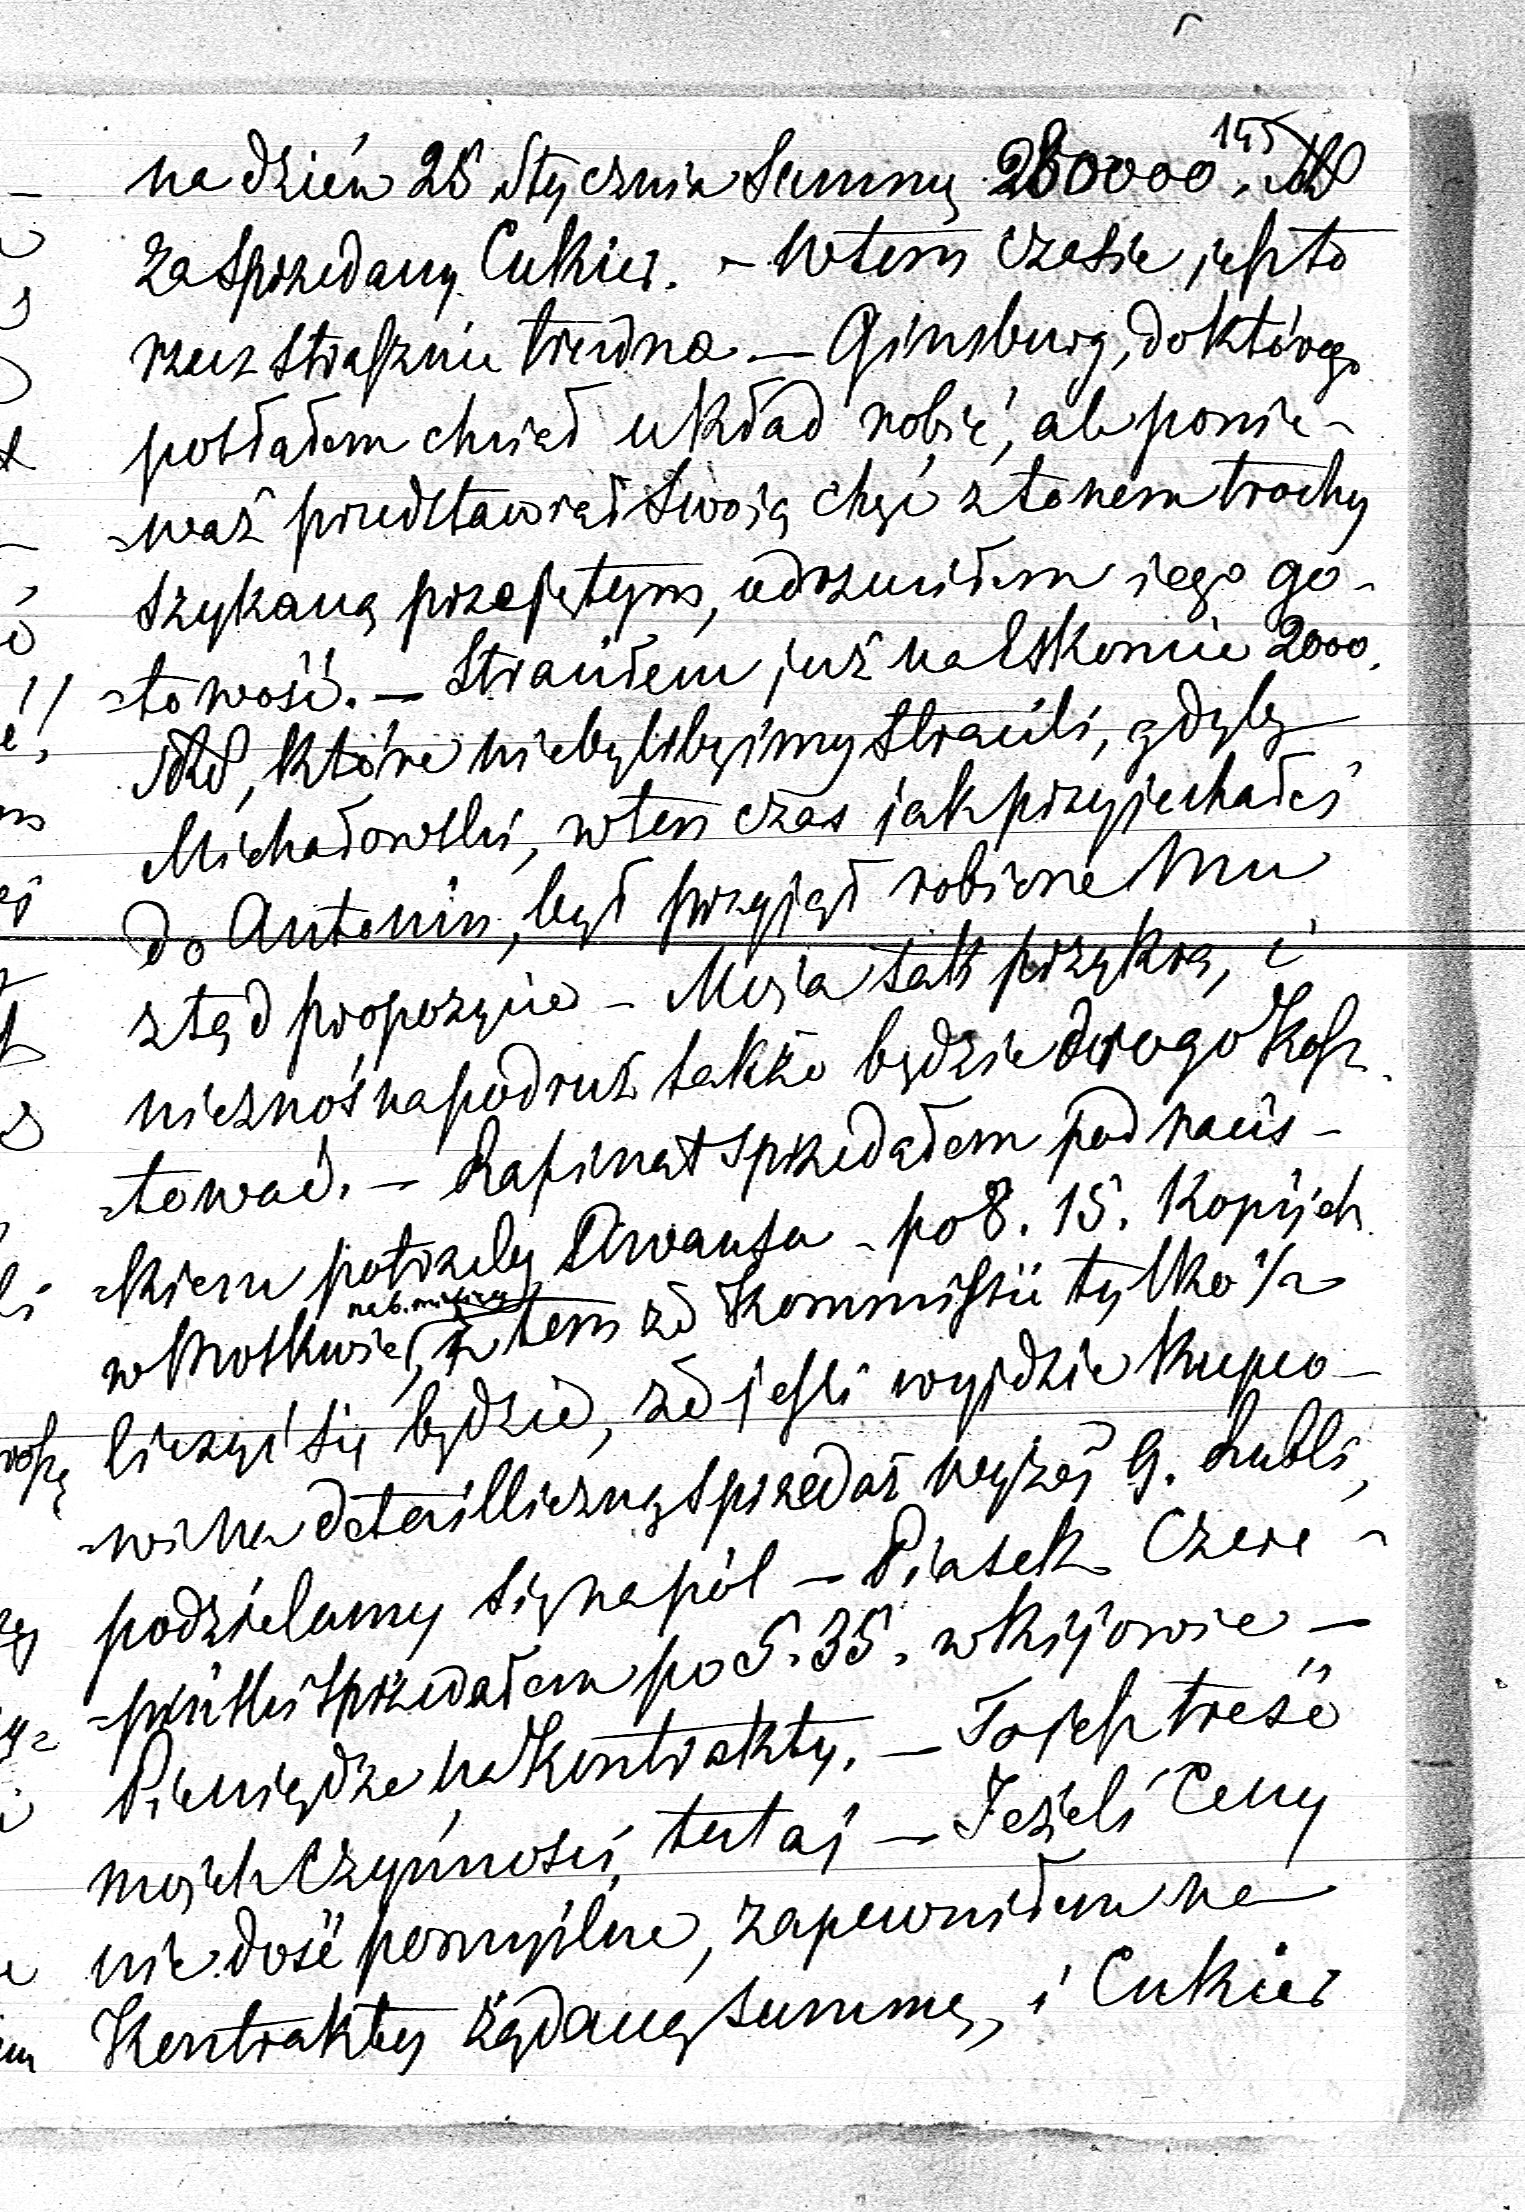 145
na dzień 25 Stycznia Summę 280000. Rbl
za sprzedany Cukier. – W tem czasie jest to
rzecz strasznie trudna – Ginsburg, do którego
posłałem chciał układ robić, ale ponie-
-waż przedstawiał swoją chęć z tonem trochę
szykaną przejętym, odrzuciłem jego go-
-towość. – Straciłem już na Eskoncie 2000.
Rbl, które niebylibyśmy stracili, gdyby
Michałowski, w ten czas jak przyjechałeś
do Antonin, był przyjął robione Mu
ztąd propozycie – Misia tak przykra, i
nieznośna podruż także będzie drogo kosz-
-tować. – Rafinat sprzedałem pod naciś-
-kiem potrzeby Awansu – po 8. 15. Kopijek
w Moskwie, z tem że Kommissii tylko ½
liczyć się będzie, że jesli wyjdzie kupco-
-wi na detailliczną sprzedaż wyżej 9. Rubli,
podzielamy się na pół – Piasek Czere-
-piński sprzedałem po 5. 35. w Kijowie –
Pieniądze na Kontrakty. – To jest treść
mojch czynności tutaj – Jeżeli Ceny
nie dość pomyślne, zapewniłem na
Kontrakty żądaną summę, i Cukier